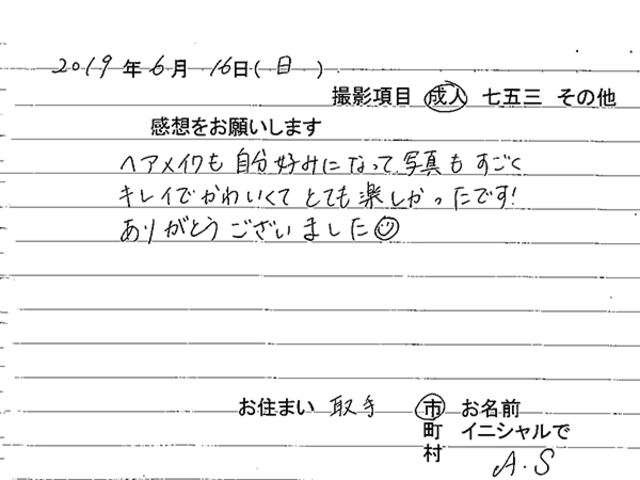 2019年6月16日(日)
撮影項目 成人 七五三 その他
感想をお願いします
ヘアメイクも自分好みになって写真もすごく
キレイでかわいくてとても楽しかったです!
ありがとうございました☺
お住まい 取手 市 お名前
町 イニシャルで
村 A.S